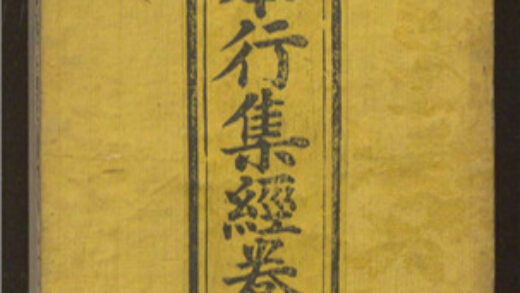 本行集經卷